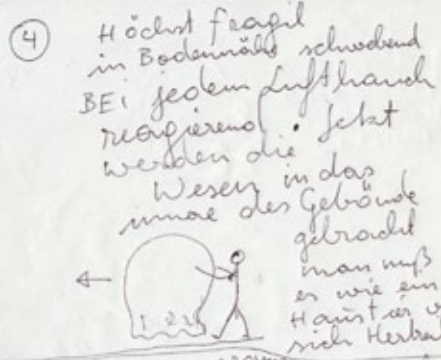 4
Höchst fragil
in Bodennähe schwebend
BEi jedem Lufthauch
reagierend. Jetzt
werden die
Wesen in das
innere des Gebäude
gebracht
man muß
es wie ein
Haustier v
sich